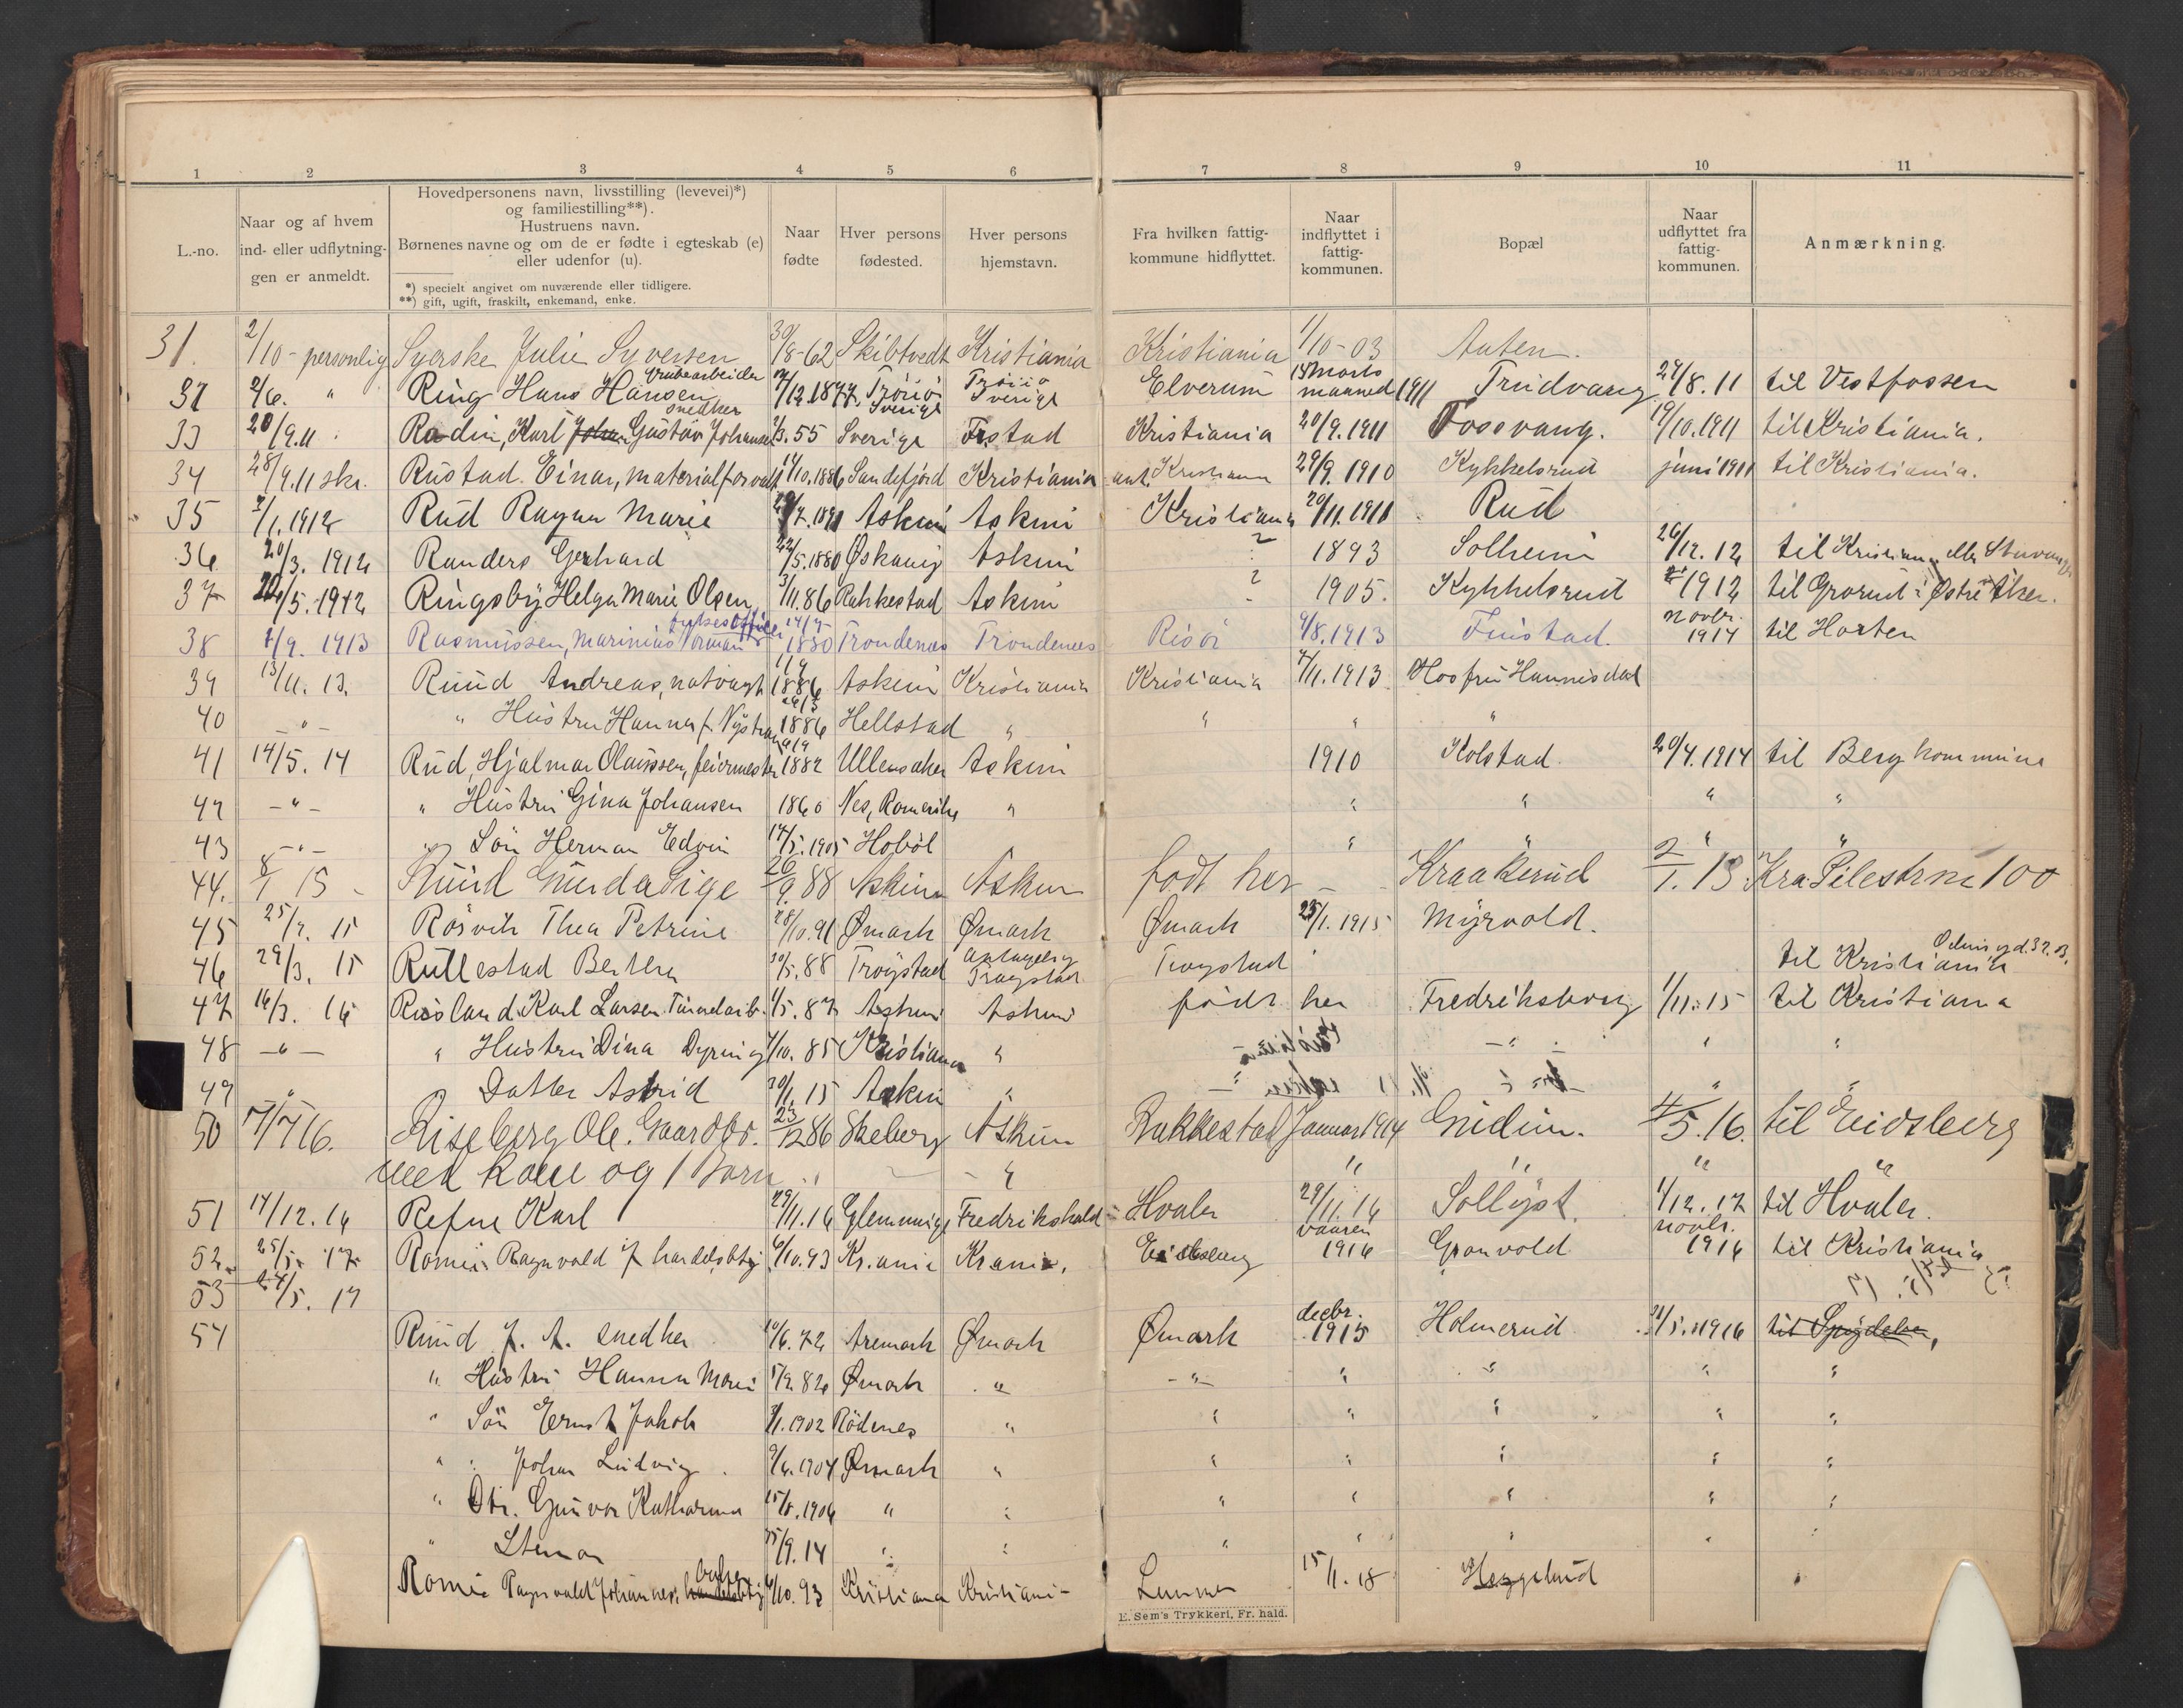 1 2 3 4 5 6 7 8 9 10 11
L.-no.
Naar og af hvem ind- eller udflytning- gen er anmeldt.
Hovedpersonens navn, livsstilling (levevei)*)
og familiestilling**).
Hustruens navn.
Børnenes navne og om de er fødte i egteskab (e)
eller udenfor (u).
*) specielt angivet om nuværende eller tidligere.
**) gift, ugift, fraskilt, enkemand, enke.
Naar fødte
Hver persons fødested.
Hver persons hjemstavn.
Fra hvilken fattig- kommune hidflyttet.
Naar indflyttet i fattig- kommunen.
Bopæl
Naar udflyttet fra fattig- kommunen.
Anmærkning.
31. 2/10 - personlig Syerske Julie Syversen 30/8-62 Skibtvedt Kristiania Kristiania 1/10-03 Auten.
31 2/6. " Ring Hans Hansen Grubearbeider 7/12.1877. Tröiiö Sverige Tröiiö Sverige Elverum 1ste Marts maaned 1911 Trudvang 29/8.11 til Vestfossen
33 20/9.11 Radin, Karl Gustav Johansen snedker 1/3.55 Sverige Fistad Kristiania 20/9.1911 Fossvang. 19/10.1911 til Kristiania.
34 28/9.11 skr. Rustad. Einar, materialforvalt 11/10.1886 Sandefjord Kristiania ant. Kristiania 29/9.1910 Kykkelsrud juni 1911 til Kristiania.
35 2/1.1912 Rud Ragna Marie Askim Askim Kristiania 20/11.1911 Rud
36 20/3.1912 Randers Gerhard 22/5.1880 Askim ? 1893 Solheim 26/12.12 til Kristiania eller Stavanger
37 20/5.1912 Ringsby Helga Marie Olsen 3/11.86 Rakkestad Askim ? 1905. Kykkelsrud 1912 til Grorud i Østre Aker.
38 1/9.1913 Rasmussen, Marinius Norman 14/9 1880 Trondenes Trondenes Risör 9/8.1913 Fustad. novbr. 1914 til Horten
39 13/11.13. Ruud Andreas, natvagt 11/9 1886 Askim Kristiania Kristiania 7/11.1913 Hos fru Hannisdal
40 - " - " Hustru Hanna f. Nystrøm 1886 Hellstad " " " "
41 14/5.14 Rud, Hjalmar Olaussen, feiermester 1882 Ullensaker Askim 1910 Kolstad. 20/4.1914 til Berg kommune
42 - " - " Hustru Gina Johansen 1860 Nes, Romerike " " " " "
43 - " - " Søn Herman Edvin 14/5.1905 Hobøl " " " " "
44. 8/1 15 - Ruud Gunda Sige 20/9.88 Askim Askim født her - Kraakerud 2/1.13 Kra. Pilestræde 100
45 25/2.15 Rösvik Thea Petrine 28/10.91 Ømark Ømark Ømark 25/1.1915 Myrvold.
46 29/3.15 Rullestad Berthe 30/5.88 Trøgstad antagelig Trøgstad Trøgstad til Kristiania Odinsgd. 32.B.
47 16/3.16 Rösland, Karl Larsen. Tømdarb. 1/5.87 Askim Askim født her Fredriksborg 1/11.15 til Kristiania
48 - " - " Hustru Dina Dyring 4/10.85 Kristiania " - " - " "
49 " Datter Astrid 30/1.15 Askim " " "
50 7/7 16. Riseberg Ole. Gaardbr. 23/12 86 Skeberg Askim Rakkestad Januar 1914 Gudim. 4/5.16. til Eidsberg
med kone og 1 Barn " " " " "
51 14/12.16 Refne Karl 29/11.16 Glemminge Fredrikshald Hvaler 29/11.16 Sollyst. 1/12.17 til Hvaler.
52. 25/5.17 Romis. Ragnvald J handelsbtj 6/10.93 Kr.ania Krania. Eidsberg vaaren 1916 Granvold novbr. 1916 til Kristiania
53 24/5.17
54 Ruud J. A. snedker 10/6.72 Aremark Ømark Ømark decbr. 1915 Holmerud 31/5.1916 til Spydeberg,
" Hustru Hanna Marie 5/2.82 Ømark " - " - " " " "
" Søn Ernst Jakob 8/1.1902 Rödenes " " " " " "
" " Johan Ludvig 9/4.1904 Ømark " " " " " "
" Dtr. Gunvor Katharina 15/8.1906 " " " " " " "
" Steinar 25/9.14 " " " " " " "
Romis Ragnvald Johannes, handelsbtj 6/10.93 Kristiania Kristiania Lunner 15/1.18 Heggelund
E. Sem's Trykkeri, Fr. hald.